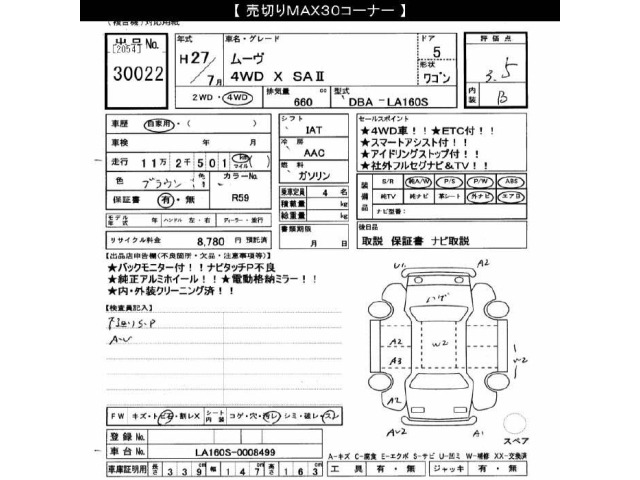 【 売切りMAX30コーナー 】
出品No.
[2054]
30022
年式
H27
7月
車名・グレード
ムーヴ
4WD X SAⅡ
ドア
5
形状
ワゴン
評価点
3.5
内装
B
2WD・4WD
排気量
660 cc
型式
DBA -LA160S
車歴
自家用・( )
車検 年 月
走行 11万2千501 km マイル
色
ブラウン
カラーNo.
R59
保証書 有・無
シフト
IAT
冷房
AAC
燃料
ガソリン
乗車定員 4 名
積載量 kg
総重量 kg
書類期限
月 日
セールスポイント
★4WD車!!★ETC付!!
★スマートアシスト付!!
★アイドリングストップ付!!
★社外フルセグナビ&TV!!
装備品
S/R 純A/W P/S P/W ABS
純TV 純ナビ 革シート 外ナビ エアB
ナビ型番:
後日品
取説 保証書 ナビ取説
モデル年式 年 ハンドル 左・右 ディーラー・並行
リサイクル料金 8,780 円 預託済
【出品店申告欄(不良箇所・欠品・注意事項等)】
★バックモニター付!!ナビタッチP不良
★純正アルミホイール!!★電動格納ミラー!!
★内・外装クリーニング済!!
【検査員記入】
A-U
FW キズ・トビ石・割レX シート内装 コゲ・穴・汚レ シミ・破レ・スレ
登録No.
車台No. LA160S-0008499
車庫証明用 長さ 339 幅 147 高さ 163
U1 A2
ハゲ
A2
A3
W2
W2
A1
AU2 A2
スペア
A-キズ C-腐食 E-エクボ S-サビ U-凹ミ W-補修 XX-交換済
工具 有・無 ジャッキ 有・無